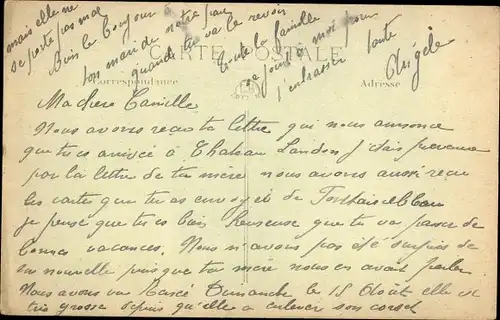 CARTE POSTALE
Correspondance
Adresse
Ma chere Camille
Nous avons recu ta lettre qui nous annonce
que tu es arrivée à Chateau Landon j'étais prevenue
par la lettre de ta mère nous avons aussi recu
les cartes que tu as envoyé de Fontainebleau
je pense que tu es bien heureuse que tu va passer de
bonnes vacances. Nous n'avons pas été surpris de
ta nouvelle puis que ta mère nous en avait parler
Nous avons vu Dimanche le 18 Août elle est
très grosse depuis qu'elle a enlever son corset
mais elle ne
se porte pas mal
Bien le bonjour à
ton mari de notre part
quand tu va le revoir
Toute la famille
se joint à moi pour
t'embrasser
Angèle